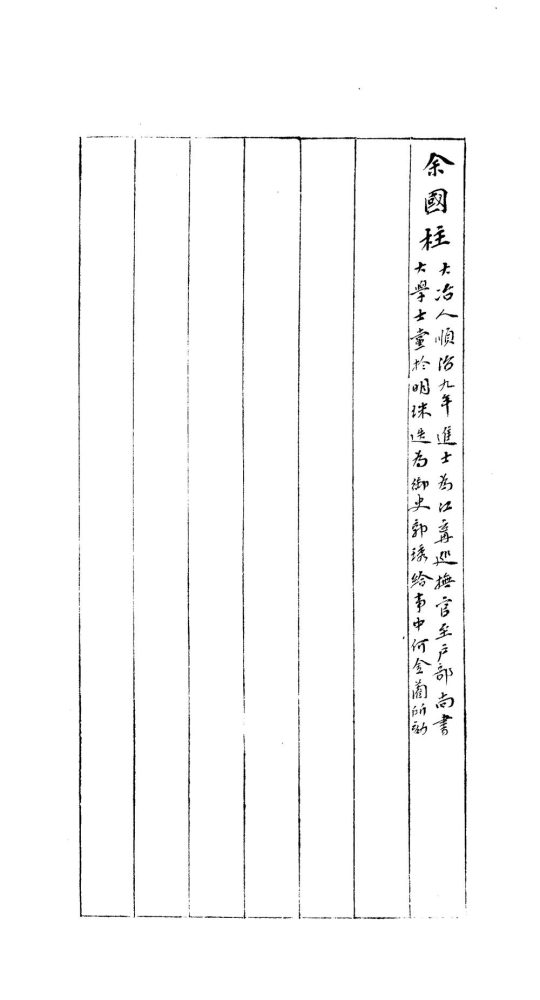 余國柱
大冶人順治九年進士為江寧巡撫官至戶部尚書
大學士黨於明珠迭為御史郭琇給事中何金藺所劾